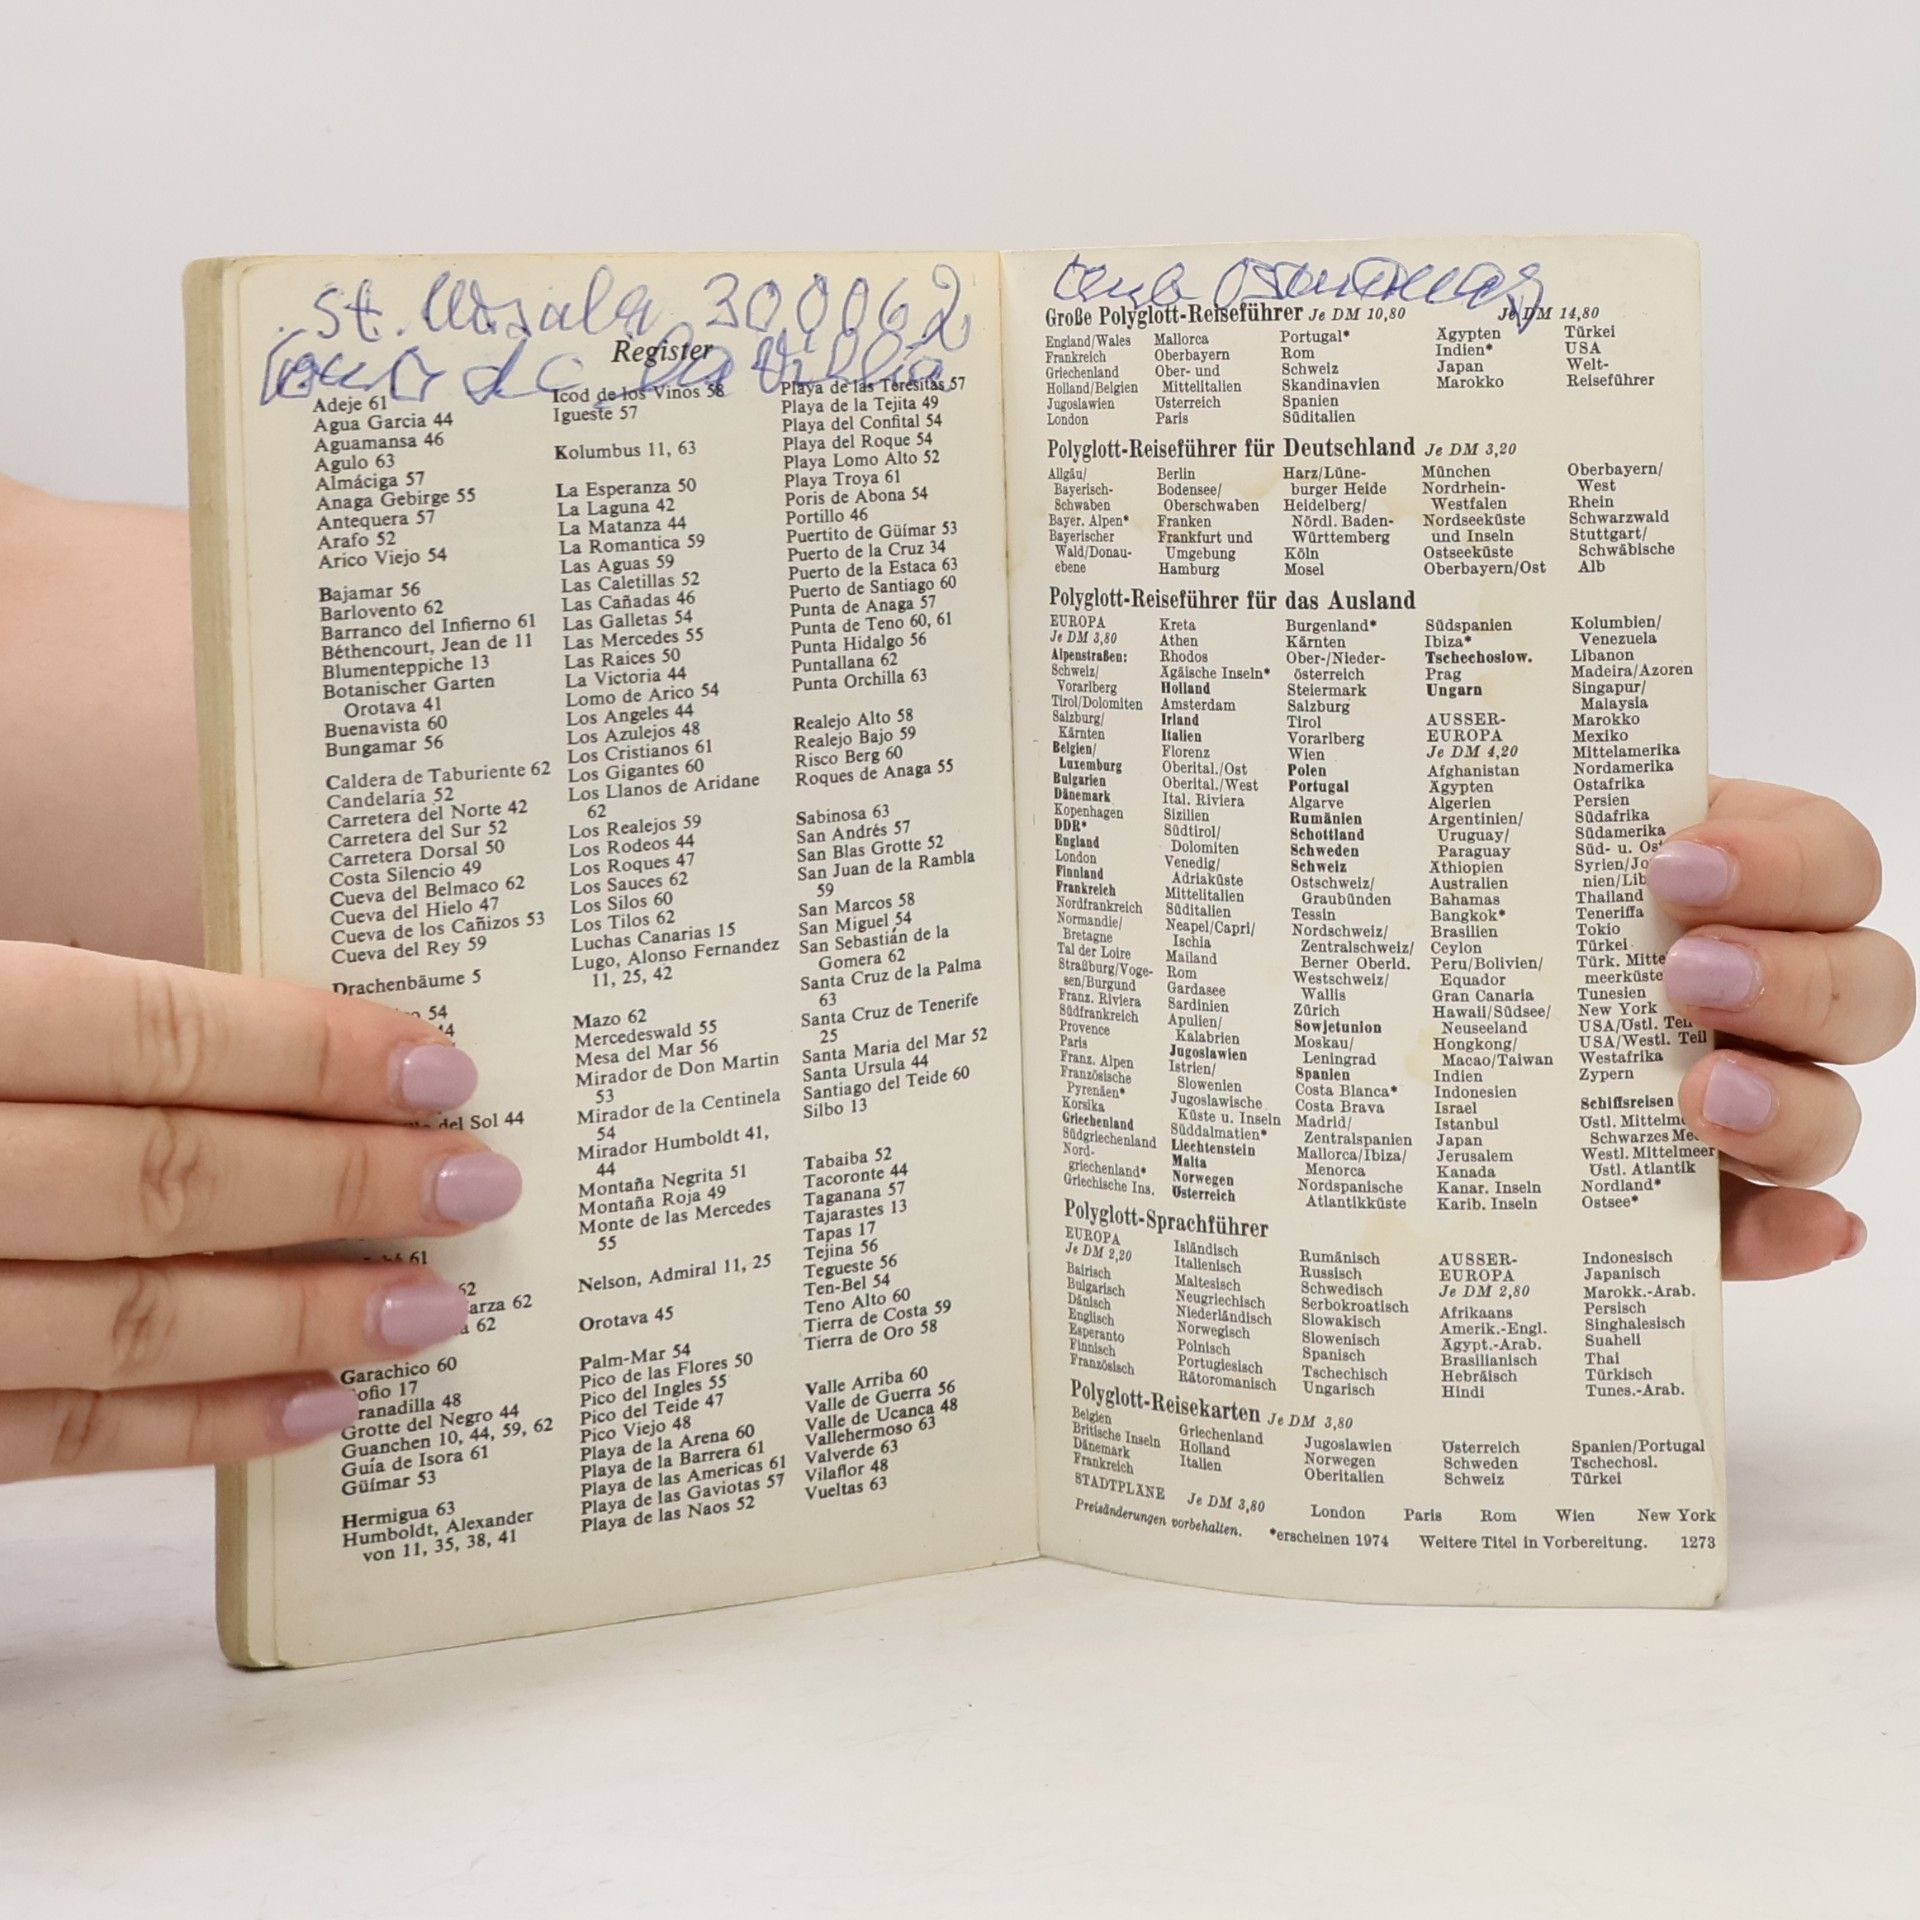 St. Ursula 300062
Register
Adeje 61
Agua Garcia 44
Aguamansa 46
Agulo 63
Almáciga 57
Anaga Gebirge 55
Antequera 57
Arafo 52
Arico Viejo 54
Bajamar 56
Barlovento 62
Barranco del Infierno 61
Béthencourt, Jean de 11
Blumenteppiche 13
Botanischer Garten
Orotava 41
Buenavista 60
Bungamar 56
Caldera de Taburiente 62
Candelaria 52
Carretera del Norte 42
Carretera del Sur 52
Carretera Dorsal 50
Costa Silencio 49
Cueva del Belmaco 62
Cueva del Hielo 47
Cueva de los Cañizos 53
Cueva del Rey 59
Drachenbäume 5
54
44
del Sol 44
61
62
arza 62
a 62
Garachico 60
Gofio 17
Granadilla 48
Grotte del Negro 44
Guanchen 10, 44, 59, 62
Guía de Isora 61
Güímar 53
Hermigua 63
Humboldt, Alexander
von 11, 35, 38, 41
Icod de los Vinos 58
Igueste 57
Kolumbus 11, 63
La Esperanza 50
La Laguna 42
La Matanza 44
La Romantica 59
Las Aguas 59
Las Caletillas 52
Las Cañadas 46
Las Galletas 54
Las Mercedes 55
Las Raices 50
La Victoria 44
Lomo de Arico 54
Los Angeles 44
Los Azulejos 48
Los Cristianos 61
Los Gigantes 60
Los Llanos de Aridane
62
Los Realejos 59
Los Rodeos 44
Los Roques 47
Los Sauces 62
Los Silos 60
Los Tilos 62
Luchas Canarias 15
Lugo, Alonso Fernandez
11, 25, 42
Mazo 62
Mercedeswald 55
Mesa del Mar 56
Mirador de Don Martin
53
Mirador de la Centinela
54
Mirador Humboldt 41,
44
Montaña Negrita 51
Montaña Roja 49
Monte de las Mercedes
55
Nelson, Admiral 11, 25
Orotava 45
Palm-Mar 54
Pico de las Flores 50
Pico del Ingles 55
Pico del Teide 47
Pico Viejo 48
Playa de la Arena 60
Playa de la Barrera 61
Playa de las Americas 61
Playa de las Gaviotas 57
Playa de las Naos 52
Playa de las Teresitas 57
Playa de la Tejita 49
Playa del Confital 54
Playa del Roque 54
Playa Lomo Alto 52
Playa Troya 61
Poris de Abona 54
Portillo 46
Puertito de Güímar 53
Puerto de la Cruz 34
Puerto de la Estaca 63
Puerto de Santiago 60
Punta de Anaga 57
Punta de Teno 60, 61
Punta Hidalgo 56
Puntallana 62
Punta Orchilla 63
Realejo Alto 58
Realejo Bajo 59
Risco Berg 60
Roques de Anaga 55
Sabinosa 63
San Andrés 57
San Blas Grotte 52
San Juan de la Rambla
59
San Marcos 58
San Miguel 54
San Sebastián de la
Gomera 62
Santa Cruz de la Palma
63
Santa Cruz de Tenerife
25
Santa Maria del Mar 52
Santa Ursula 44
Santiago del Teide 60
Silbo 13
Tabaiba 52
Tacoronte 44
Taganana 57
Tajarastes 13
Tapas 17
Tejina 56
Tegueste 56
Ten-Bel 54
Teno Alto 60
Tierra de Costa 59
Tierra de Oro 58
Valle Arriba 60
Valle de Guerra 56
Valle de Ucanca 48
Vallehermoso 63
Valverde 63
Vilaflor 48
Vueltas 63
Große Polyglott-Reiseführer Je DM 10,80 Je DM 14,80
England/Wales
Frankreich
Griechenland
Holland/Belgien
Jugoslawien
London
Mallorca
Oberbayern
Ober- und
Mittelitalien
Österreich
Paris
Portugal*
Rom
Schweiz
Skandinavien
Spanien
Süditalien
Ägypten
Indien*
Japan
Marokko
Türkei
USA
Welt-
Reiseführer
Polyglott-Reiseführer für Deutschland Je DM 3,20
Allgäu/
Bayerisch-
Schwaben
Bayer. Alpen*
Bayerischer
Wald/Donau-
ebene
Berlin
Bodensee/
Oberschwaben
Franken
Frankfurt und
Umgebung
Hamburg
Harz/Lüne-
burger Heide
Heidelberg/
Nördl. Baden-
Württemberg
Köln
Mosel
München
Nordrhein-
Westfalen
Nordseeküste
und Inseln
Ostseeküste
Oberbayern/Ost
Oberbayern/
West
Rhein
Schwarzwald
Stuttgart/
Schwäbische
Alb
Polyglott-Reiseführer für das Ausland
EUROPA
Je DM 3,80
Alpenstraßen:
Schweiz/
Vorarlberg
Tirol/Dolomiten
Salzburg/
Kärnten
Belgien/
Luxemburg
Bulgarien
Dänemark
Kopenhagen
DDR*
England
London
Finnland
Frankreich
Nordfrankreich
Normandie/
Bretagne
Tal der Loire
Straßburg/Voge-
sen/Burgund
Franz. Riviera
Südfrankreich
Provence
Paris
Franz. Alpen
Französische
Pyrenäen*
Korsika
Griechenland
Südgriechenland
Nord-
griechenland*
Griechische Ins.
Kreta
Athen
Rhodos
Ägäische Inseln*
Holland
Amsterdam
Irland
Italien
Florenz
Oberital./Ost
Oberital./West
Ital. Riviera
Sizilien
Südtirol/
Dolomiten
Venedig/
Adriaküste
Mittelitalien
Süditalien
Neapel/Capri/
Ischia
Mailand
Rom
Gardasee
Sardinien
Apulien/
Kalabrien
Jugoslawien
Istrien/
Slowenien
Jugoslawische
Küste u. Inseln
Süddalmatien*
Liechtenstein
Malta
Norwegen
Österreich
Burgenland*
Kärnten
Ober-/Nieder-
österreich
Steiermark
Salzburg
Tirol
Vorarlberg
Wien
Polen
Portugal
Algarve
Rumänien
Schottland
Schweden
Schweiz
Ostschweiz/
Graubünden
Tessin
Nordschweiz/
Zentralschweiz/
Berner Oberld.
Westschweiz/
Wallis
Zürich
Sowjetunion
Moskau/
Leningrad
Spanien
Costa Blanca*
Costa Brava
Madrid/
Zentralspanien
Mallorca/Ibiza/
Menorca
Nordspanische
Atlantikküste
Südspanien
Ibiza*
Tschechoslow.
Prag
Ungarn
AUSSER-
EUROPA
Je DM 4,20
Afghanistan
Ägypten
Algerien
Argentinien/
Uruguay/
Paraguay
Äthiopien
Australien
Bahamas
Bangkok*
Brasilien
Ceylon
Peru/Bolivien/
Equador
Gran Canaria
Hawaii/Südsee/
Neuseeland
Hongkong/
Macao/Taiwan
Indien
Indonesien
Israel
Istanbul
Japan
Jerusalem
Kanada
Kanar. Inseln
Karib. Inseln
Kolumbien/
Venezuela
Libanon
Madeira/Azoren
Singapur/
Malaysia
Marokko
Mexiko
Mittelamerika
Nordamerika
Ostafrika
Persien
Südafrika
Südamerika
Süd- u. Ost
Syrien/Jo
nien/Lib
Thailand
Teneriffa
Tokio
Türkei
Türk. Mitte
meerküste
Tunesien
New York
USA/Östl. Teil
USA/Westl. Teil
Westafrika
Zypern
Schiffsreisen
Östl. Mittelm
Schwarzes Mee
Westl. Mittelmeer
Östl. Atlantik
Nordland*
Ostsee*
Polyglott-Sprachführer
EUROPA
Je DM 2,20
Bairisch
Bulgarisch
Dänisch
Englisch
Esperanto
Finnisch
Französisch
Isländisch
Italienisch
Maltesisch
Neugriechisch
Niederländisch
Norwegisch
Polnisch
Portugiesisch
Rätoromanisch
Rumänisch
Russisch
Schwedisch
Serbokroatisch
Slowakisch
Slowenisch
Spanisch
Tschechisch
Ungarisch
AUSSER-
EUROPA
Je DM 2,80
Afrikaans
Amerik.-Engl.
Ägypt.-Arab.
Brasilianisch
Hebräisch
Hindi
Indonesisch
Japanisch
Marokk.-Arab.
Persisch
Singhalesisch
Suaheli
Thai
Türkisch
Tunes.-Arab.
Polyglott-Reisekarten Je DM 3,80
Belgien
Britische Inseln
Dänemark
Frankreich
Griechenland
Holland
Italien
Jugoslawien
Norwegen
Oberitalien
Österreich
Schweden
Schweiz
Spanien/Portugal
Tschechosl.
Türkei
STADTPLÄNE Je DM 3,80 London Paris Rom Wien New York
Preisänderungen vorbehalten. *erscheinen 1974 Weitere Titel in Vorbereitung. 1273